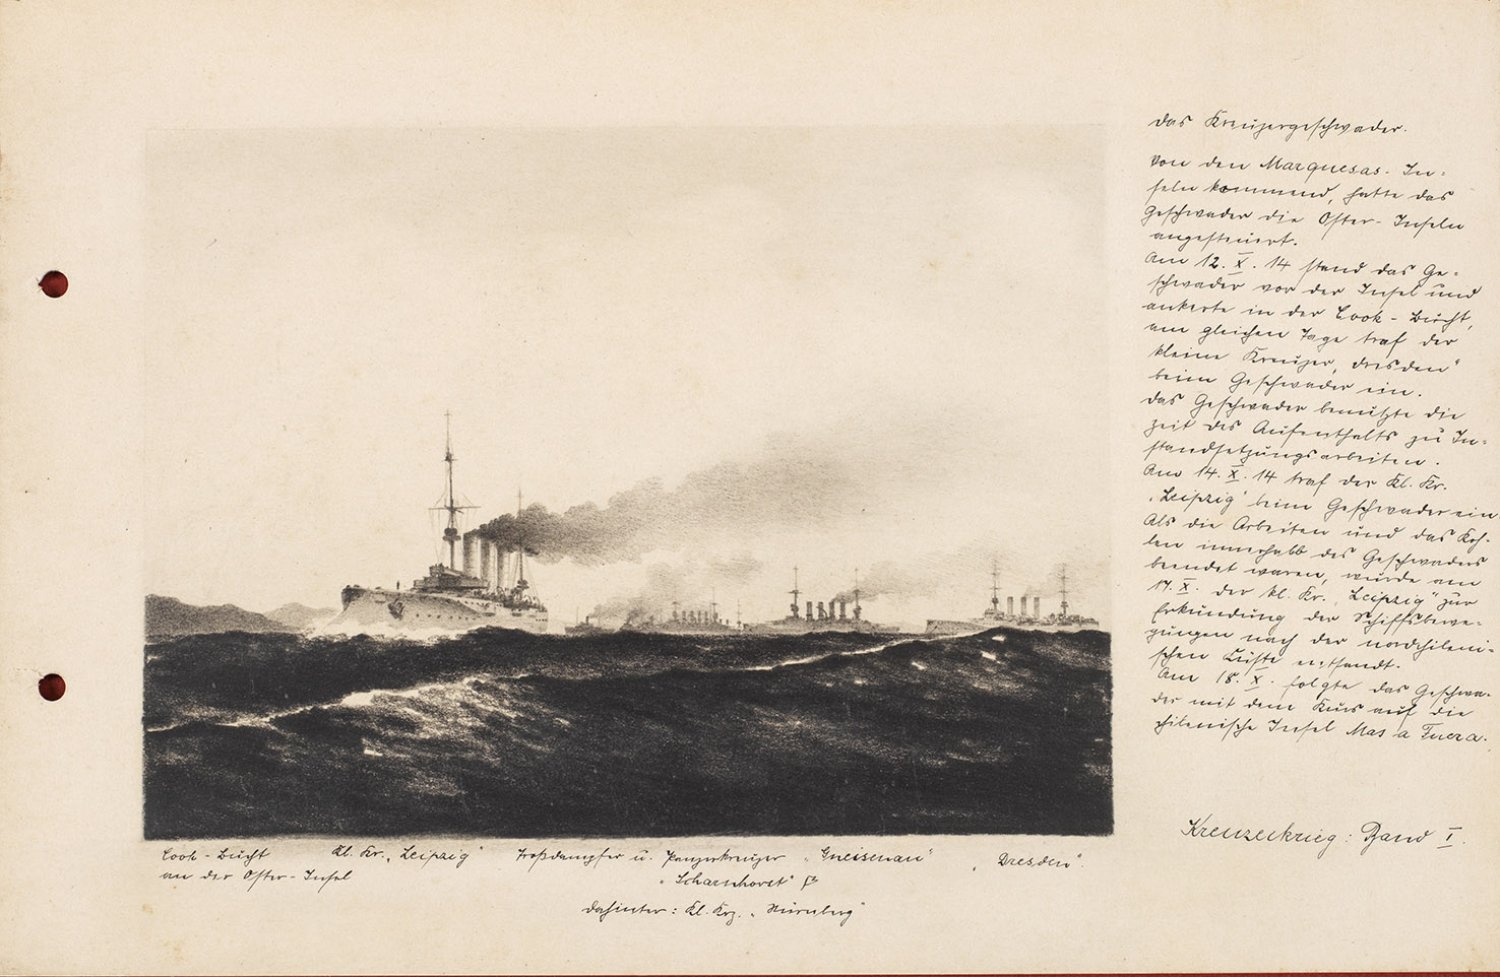 Das Kreuzergeschwader.
Von den Marquesas-In-
seln kommend, hatte das
Geschwader die Oster-Inseln
angesteuert.
Am 12. X. 14 stand das Ge-
schwader vor der Insel und
ankerte in der Cook-Bucht,
am gleichen Tage traf der
kleine Kreuzer „Dresden“
beim Geschwader ein.
Das Geschwader benützte die
Zeit des Aufenthalts zu In-
standsetzungsarbeiten.
Am 14. X. 14 traf der Kl. Kr.
„Leipzig“ beim Geschwader ein.
Als die Arbeiten und das Koh-
len innerhalb des Geschwaders
beendet waren, wurde am
17. X. der kl. Kr. „Leipzig“ zur
Erkundung der Schiffsbewe-
gungen nach der nordchileni-
schen Küste entsandt.
Am 18. X. folgte das Geschwa-
der mit dem Kurs auf die
chilenische Insel Mas a Fuera.
Kreuzerkrieg: Band I.
Cook-Bucht Kl. Kr. „Leipzig“ Troßdampfer u. Panzerkreuzer „Gneisenau“ „Dresden“.
an der Oster-Insel „Scharnhorst“
dahinter: Kl. Krz. „Nürnberg“